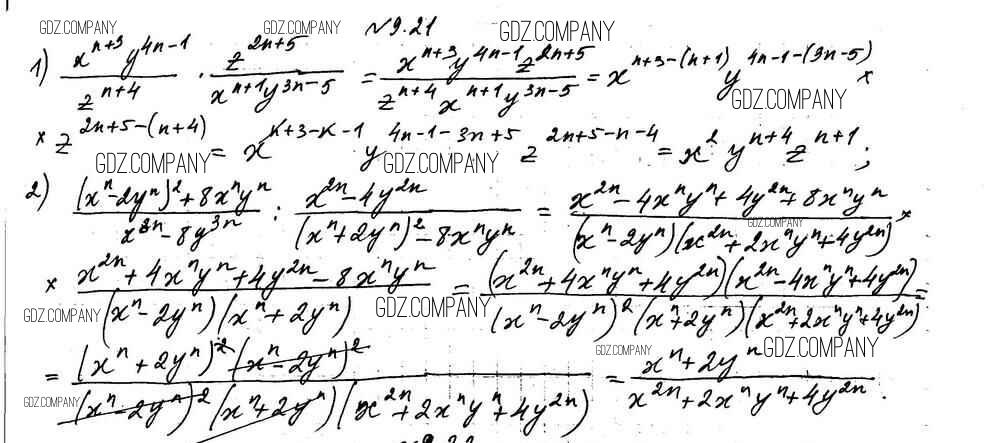 №9.21
1) \frac{x^{n+3} y^{4n-1}}{z^{n+4}} · \frac{z^{2n+5}}{x^{n+1} y^{3n-5}} = \frac{x^{n+3} y^{4n-1} z^{2n+5}}{z^{n+4} x^{n+1} y^{3n-5}} = x^{n+3-(n+1)} y^{4n-1-(3n-5)} ×
× z^{2n+5-(n+4)} = x^{n+3-n-1} y^{4n-1-3n+5} z^{2n+5-n-4} = x^2 y^{n+4} z^{n+1};
2) \frac{(x^n-2y^n)^2+8x^n y^n}{x^{3n}-8y^{3n}} : \frac{x^{2n}-4y^{2n}}{(x^n+2y^n)^2-8x^n y^n} = \frac{x^{2n}-4x^n y^n+4y^{2n}+8x^n y^n}{(x^n-2y^n)(x^{2n}+2x^n y^n+4y^{2n})} ×
× \frac{x^{2n}+4x^n y^n+4y^{2n}-8x^n y^n}{(x^n-2y^n)(x^n+2y^n)} = \frac{(x^{2n}+4x^n y^n+4y^{2n})(x^{2n}-4x^n y^n+4y^{2n})}{(x^n-2y^n)^2(x^n+2y^n)(x^{2n}+2x^n y^n+4y^{2n})} =
= \frac{(x^n+2y^n)^2(x^n-2y^n)^2}{(x^n-2y^n)^2(x^n+2y^n)(x^{2n}+2x^n y^n+4y^{2n})} = \frac{x^n+2y^n}{x^{2n}+2x^n y^n+4y^{2n}}.
GDZ.COMPANY
GDZ.COMPANY
GDZ.COMPANY
GDZ.COMPANY
GDZ.COMPANY
GDZ.COMPANY
GDZ.COMPANY
GDZ.COMPANY
GDZ.COMPANY
GDZ.COMPANY
GDZ.COMPANY
GDZ.COMPANY